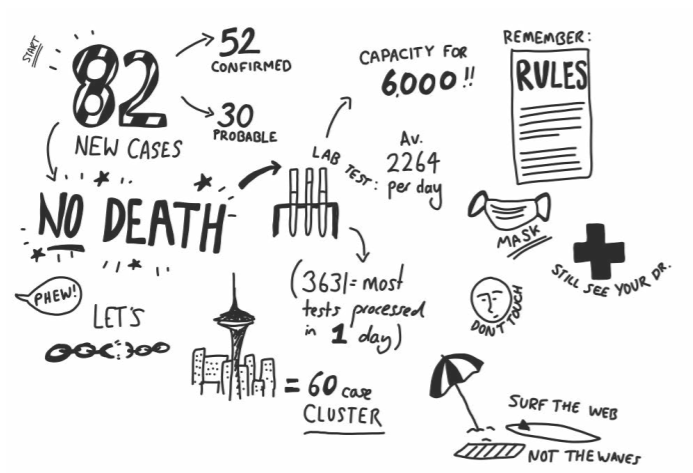 START
82
NEW CASES
52
CONFIRMED
30
PROBABLE
NO DEATH
PHEW!
LET'S
LAB TEST:
CAPACITY FOR
6,000!!
Av.
2264
per day
(3631= most
tests processed
in 1 day)
= 60 case
CLUSTER
REMEMBER:
RULES
MASK
STILL SEE YOUR DR.
DON'T TOUCH
SURF THE WEB
NOT THE WAVES